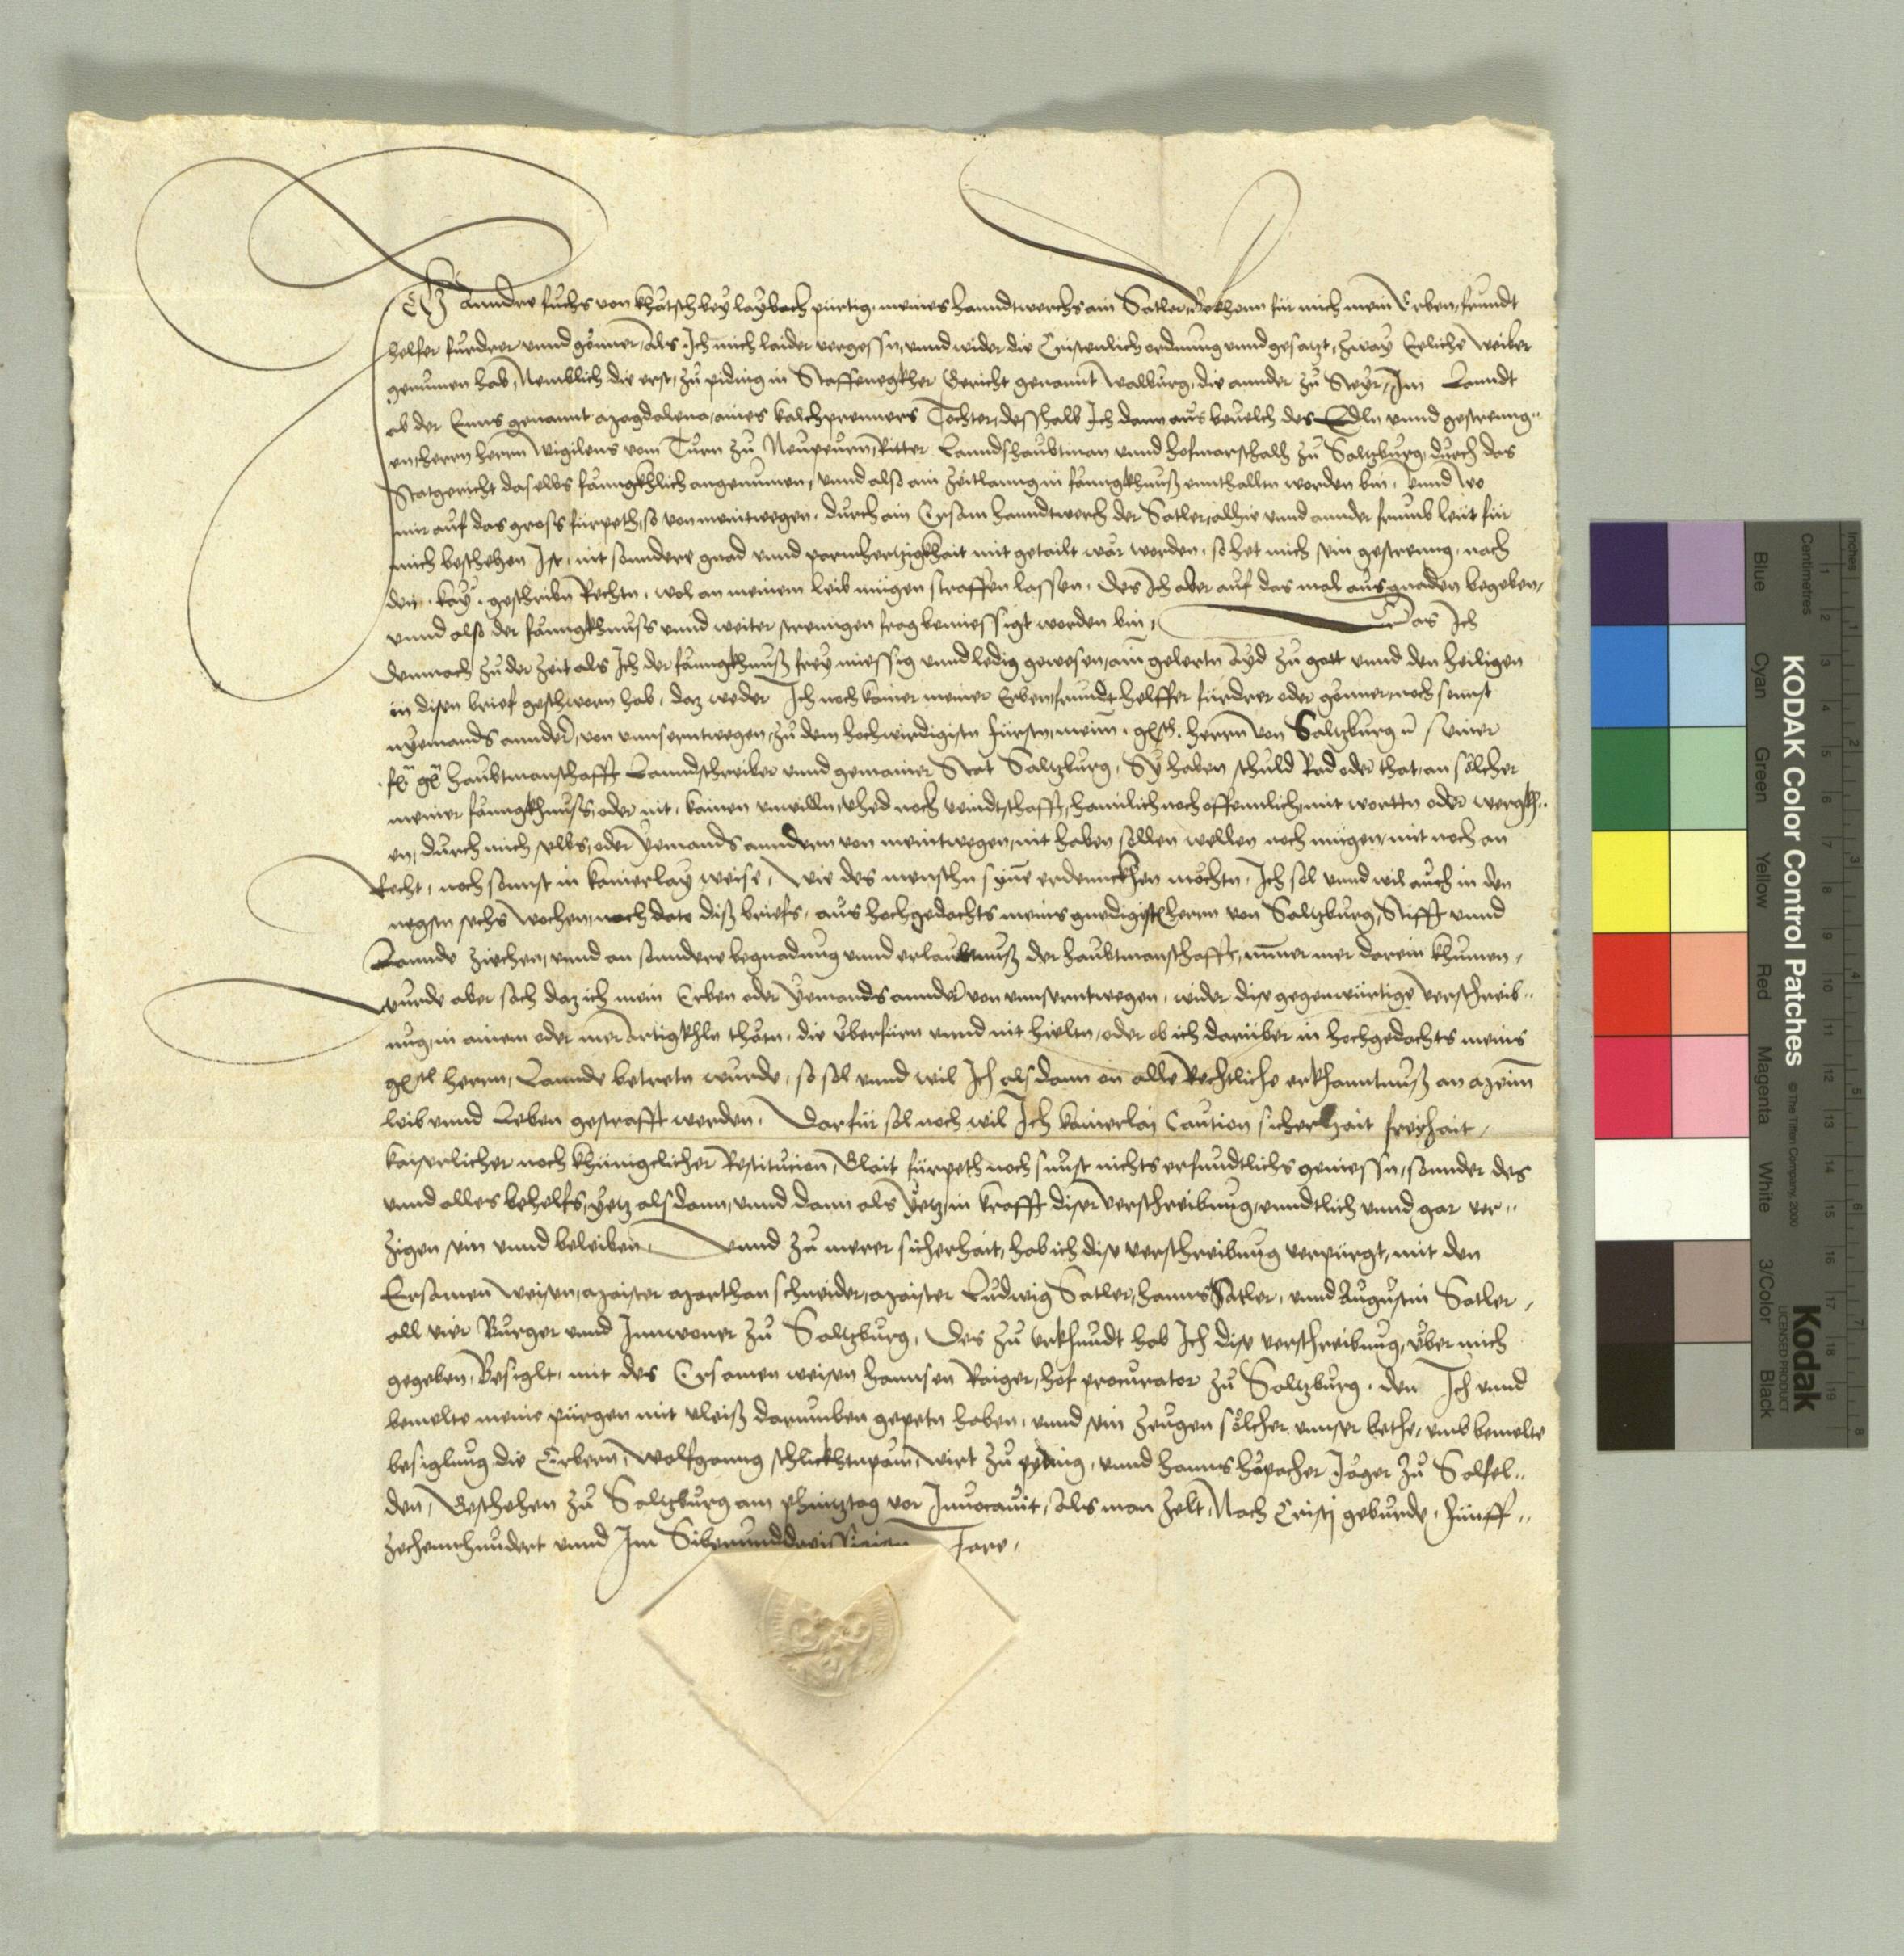 Ich Anndre fuchs von khätsch bey laybach pürtig, meines hanndtwerchs ain Satler, Bekhenn für mich mein Erben, frundt
helfer furdrer vnnd gönner, Als Ich mich laider vergessn, vnnd wider die Cristenlich ordnung vnnd gesatzt, zway Eeliche weiber
genumen hab, Nemblich die erst, zu piding in Staffenegkher Gericht genannt walburg, die annder zu Steyr, Im Lanndt
ob der Enns genannt Magdalena, aines kalchprenners Tochter, desshalb Ich dann aus beuelch des Edln vnnd gestreng-
en, herrn herrn Wigileus vom Turn zu Neupeurn, Ritter Lanndshaubtman vnnd hofmarschalh zu Saltzburg, durch das
Statgericht daselbs fänngkhlich angenumen, vnnd also ain zeitlanng in fänngkhnuß ennthalltn worden bin, vnnd wo
mir auf das gross fürpeth, so von meintwegen, durch ain Ersam hanndtwerch der Satler, alhie vnnd annder frumb leüt für
mich beschehen Ist, nit sonndere gnad vnnd parmhertzigkhait mit getailt wär worden, so het mich sein gestreng, nach
den kay. geschribn Rechtn, wol an meinem leib mügen straffen lassen, Des Ich aber auf das mal aus gnaden begeben,
vnnd also der fänngkhnuss vnnd weiter strengen frag bemiessigt worden bin, Das Ich
demnach zu der zeit als Ich der fänngkhnuß frey miessig vnnd ledig gewesen, ain gelertn ayd zu gott vnnd den heiligen
in disen brief geschworn hab, daz weder Ich noch kainer meiner Erben, frundt helffer fürdrer oder gönner, noch sonnst
nyemands annder, von vnnserntwegen, zu dem hochwirdigistn fürstn, mein gstn. herrn von Saltzburg seiner
f. g. haubtmanschafft Lanndschreiber vnnd gemainer Stat Saltzburg, Sy haben schuld Rad oder that, an sölcher
meiner fänngkhnuss, oder nit, kainen vnwilln, vhed noch veindtschafft, haimlich noch offennlich, mit wortn oder wergkh-
en, durch mich selbs, oder yemands anndern von meintwegen, nit haben söllen wellen noch mügen, mit noch an
Recht, noch sonnst in kainerlay weise, Wie des menschn synne erdennckhen möchtn, Ich sol vnnd wil auch in den
negstn sechs wochen, nach dato diß briefs, aus hochgedachts meins gnedigistn herrn von Saltzburg, Stifft vnnd
Lannde ziechen, vnnd an sonndere begnadung vnnd erlaubtnuß der haubtmanschafft, nimer mer darein khumen,
wurde aber sach daz ich mein Erben oder yemands annder von vnnserntwegen, wider dise gegenwürtige verschreib-
ung, in ainem oder mer Artigkhln thätn, die vberfürn vnnd nit hieltn, oder ob ich darüber in hochgedachts meins
gstn herrn, Lannde betretn wurde, so sol vnnd wil Ich alsdann on alle Rechtliche erkhanntnuß an Meinn
leib vnnd Leben gestrafft werden, Darfür sol noch wil Ich kainerlai Caution sicherhait freyhait,
kaiserlicher noch khüniglicher Restitucion, Glait fürpeth noch sunst nichts erfundtlichs geniessn, sonnder des
vnnd alles behelfs, yetz als dann, vnnd dann als yetz, in krafft diser verschreibung, enndtlich vnnd gar ver-
zigen sein vnnd beleiben, Vnnd zu merer sicherhait, hab ich dise verschreibung verpürgt, mit den
Ersamen weisen, Maister Marthan schneider, Maister Ludwig Satler, hanns Satler, vnnd Augustin Satler,
all vier Burger vnnd Innwoner zu Saltzburg, Des zu vrkhundt hab Ich dise verschreibung, vber mich
gegeben, Besiglt, mit des Ersamen weisen hannsen Raiger, hof procurator zu Saltzburg, den Ich vnnd
bemelte meine pürgen mit vleiß darumben gepetn haben, vnnd sein zeugen sölcher vnnser bethe, vmb bemelte
besiglung die Erbern, Wolfgang schlickhtnpam, wirt zu pyding, vnnd hanns häpacher Jäger zu Salfel-
den, Geschehen zu Saltzburg am phintztag vor Inuocauit, Als man zelt, Nach Cristj geburde, fünff-
zechennhundert vnnd Im Sibenunddreissigisten Jare,
KODAK Color Control Patches
© The Tiffen Company, 2000
Kodak
LICENSED PRODUCT
Inches
Centimetres
Blue Cyan Green Yellow Red Magenta White 3/Color Black